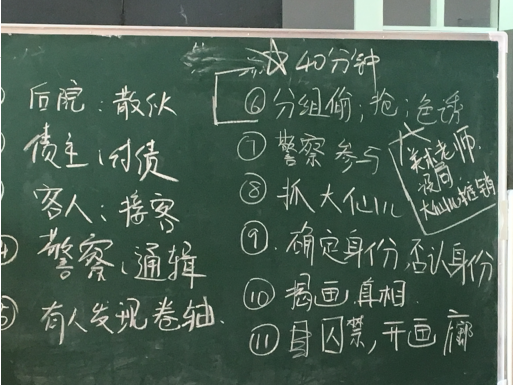 后院：散伙
债主：讨债
客人：接客
④ 警察：通辑
⑤ 有人发现卷轴.
☆ 40分钟
⑥ 分组偷；抢；色诱
⑦ 警察参与
⑧ 抓大仙儿
⑨ 确定身份，否认身份
⑩ 揭画，真相.
⑪ 囚禁，开画廊
美术老师.
大仙儿推销